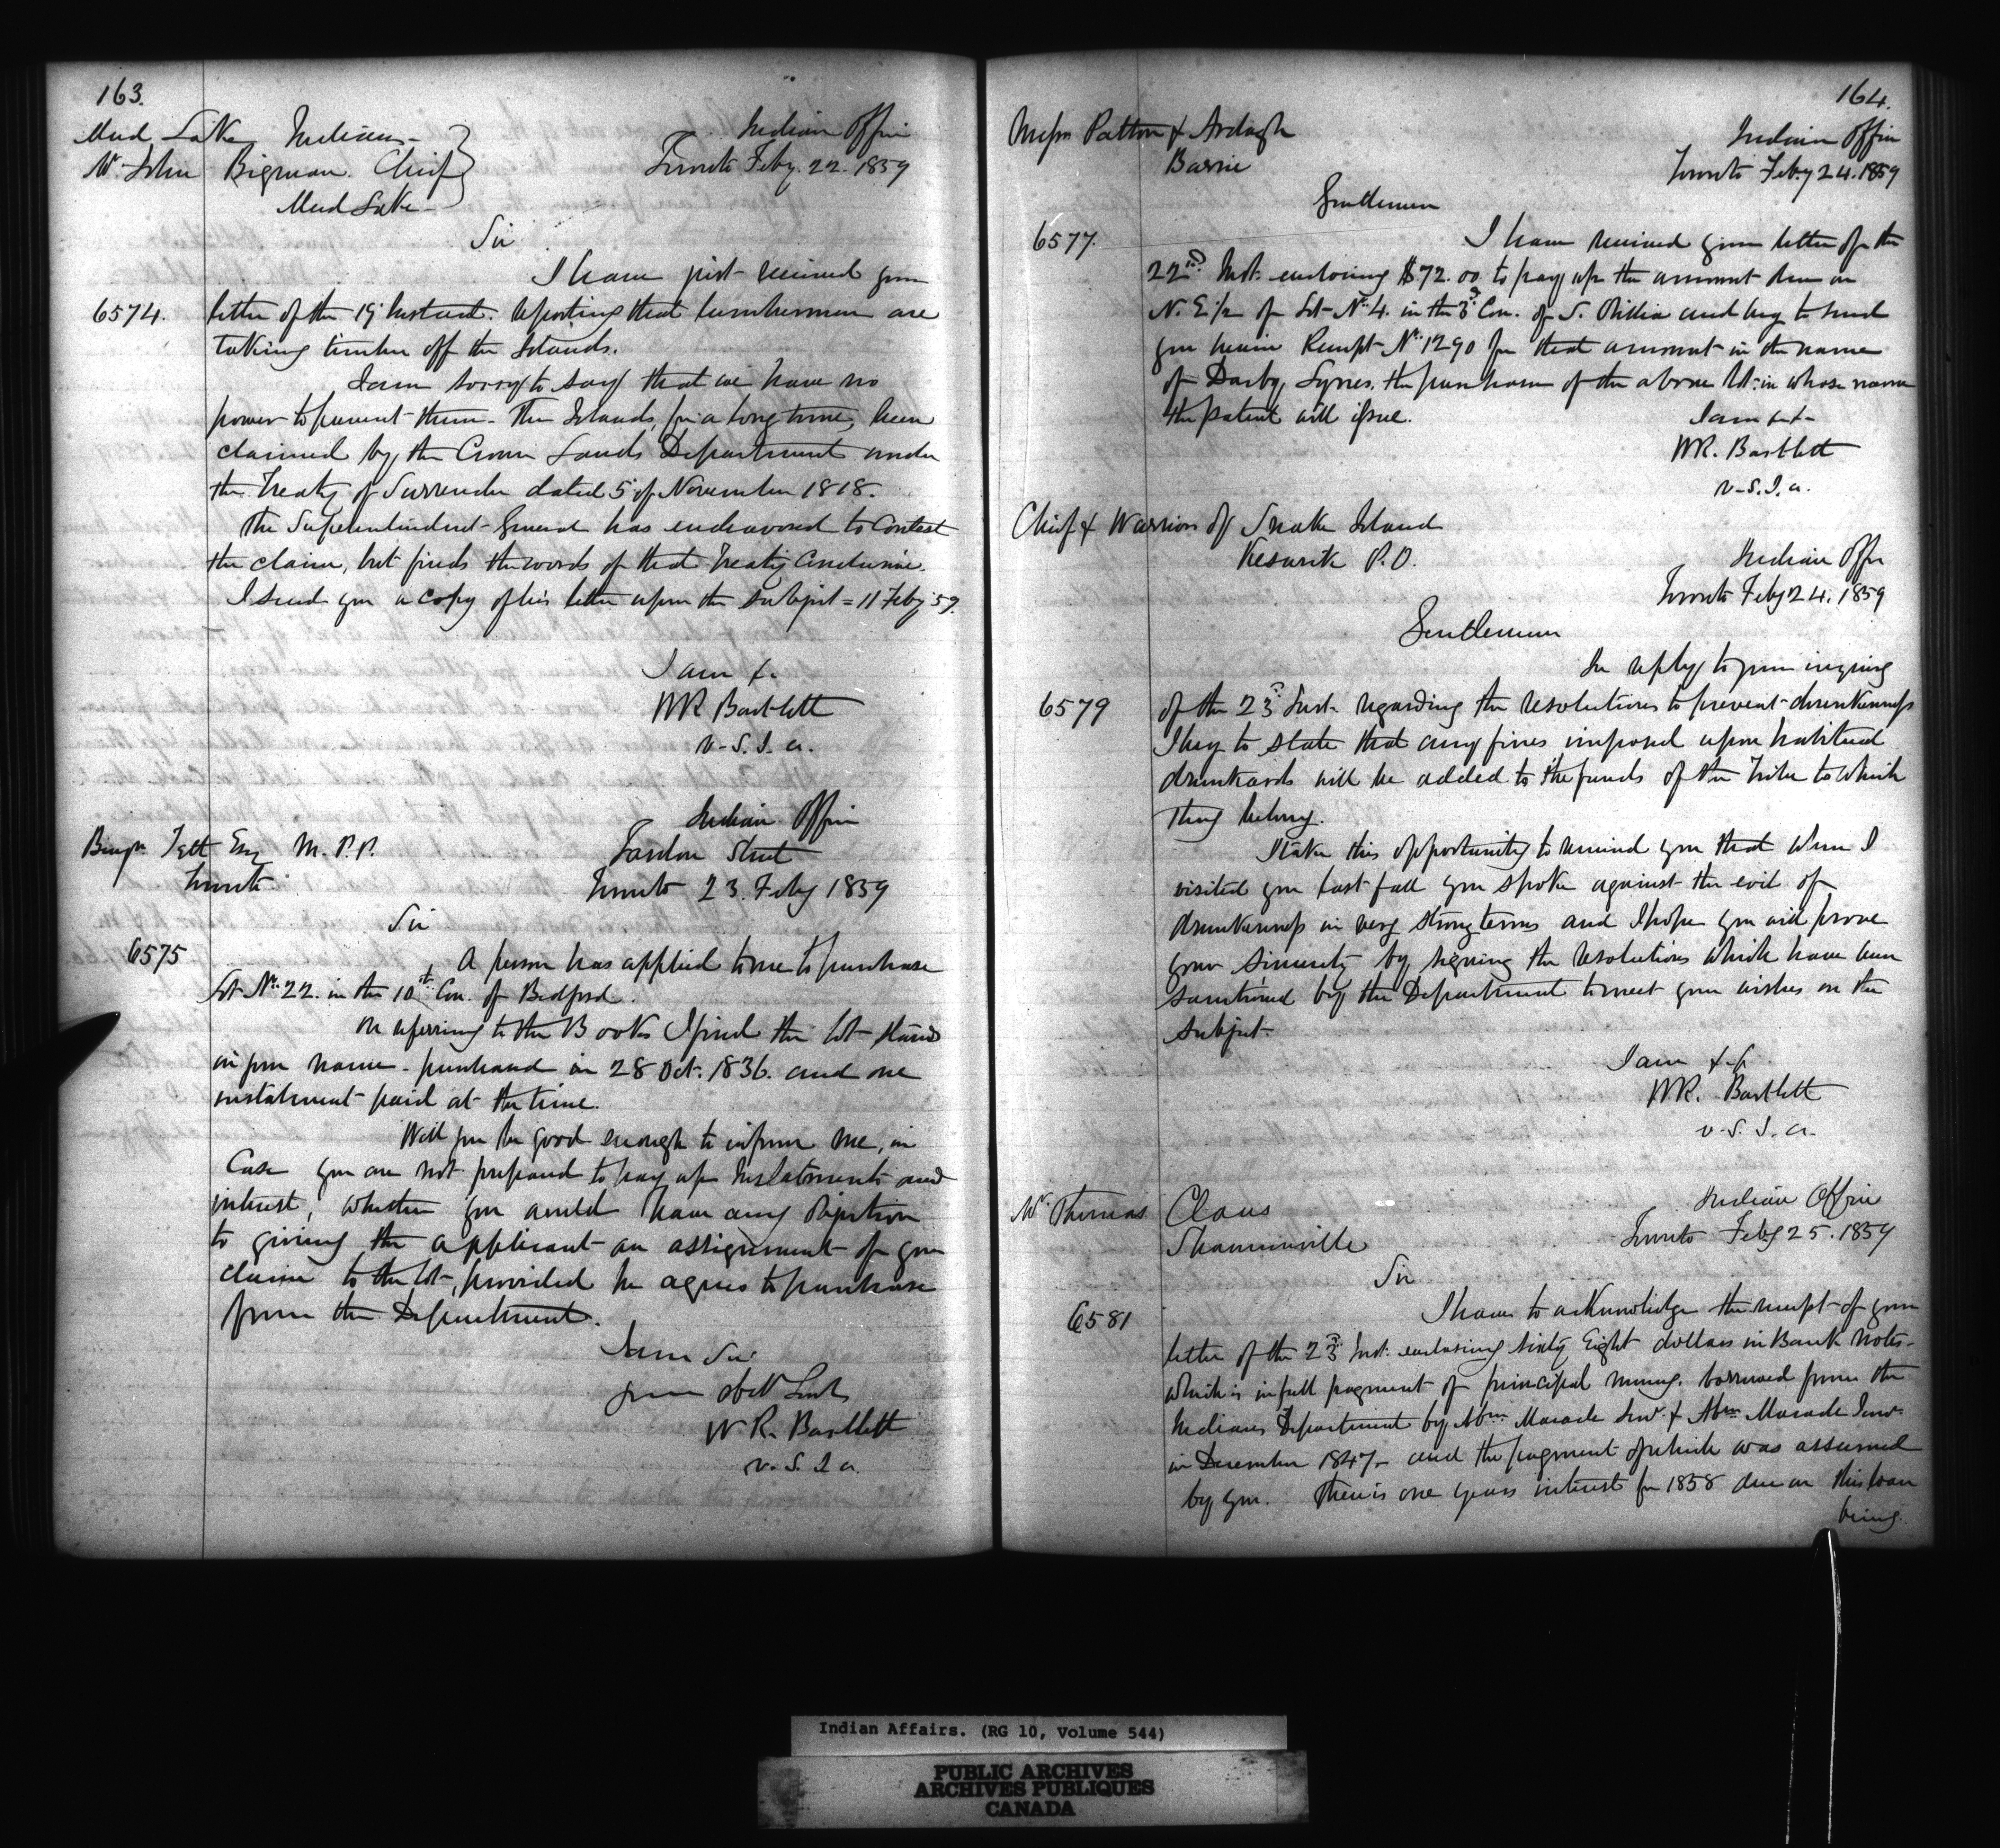 163.
Mud Lake Indians
Mr John Bigman. Chief
Mud Lake
Indian Office
Toronto Feby. 22. 1859
Sir
I have just received your
6574. letter of the 19th Instant. reporting that lumbermen are
taking timber off the Islands.
I am sorry to say that we have no
power to prevent them. The Islands, for a long time, been
claimed by the Crown Lands Department under
the Treaty of Surrender dated 5th of November 1818.
The Superintendent General has endeavored to Contest
the claim, but finds the words of that Treaty Conclusive.
I send you a copy of his letter upon the subject = 11 Feby 59.
I am &.
WR Bartlett
V.S.I.A.
Indian Office
Benjn Tett Esq M.P.P.
Toronto
Street
Toronto 23. Feby 1859
Sir
6575 A person has applied to me to purchase
Lot No. 22. in the 10th Con. of Bedford.
On referring to the Books I find the lot stands
in your name - purchased in 28 Oct. 1836. and one
instalment paid at the time.
Will you be good enough to inform me, in
Case you are not prepared to pay up Instalments and
interest, whether you would have any Objection
to giving the applicant an assignment of your
claim to the lot, provided he agrees to purchase
from the Department.
I am Sir
your obt Servt
W R. Bartlett
V.S.I.A.
164.
Messrs Patton & Ardagh
Barrie
Indian Office
Toronto Feby 24. 1859
Gentlemen
6577. I have received your letter of the
22nd Inst. enclosing $72.00 to pay up the amount due on
N. E 1/2 of Lot No 4. in the 3d Con. of S. Orillia and beg to send
you herein Receipt No 1290 for that amount in the name
of Darby Lynes, the purchaser of the above lot in whose name
the patent will issue.
I am &
WR. Bartlett
V.S.I.A.
Chief & Warriors of Snake Island
Keswick P.O.
Indian Office
Toronto Feby 24. 1859
Gentlemen
In reply to your inquiry
6579 of the 23d Inst. regarding the resolutions to prevent drunkenness
I beg to state that any fines imposed upon habitual
drunkards will be added to the funds of the Tribe to which
they belong.
I take this opportunity to remind you that when I
visited you last fall you spoke against the evil of
drunkenness in very strong terms and I hope you will prove
your sincerity by signing the resolutions which have been
sanctioned by the Department to meet your wishes on the
subject.
I am &c
WR. Bartlett
V.S.I.A.
Mr Thomas Claus
Shannonville
Indian Office
Toronto Feby 25. 1859
Sir
6581 I have to acknowledge the receipt of your
letter of the 23d Inst. enclosing sixty Eight dollars in Bank Notes
which is in full payment of principal money, borrowed from the
Indian Department by Abm Maracle Senr. & Abm Maracle Junr
in December 1847 - and the payment of which was assumed
by you. There is one years interest for 1858 due on this loan
being
Indian Affairs. (RG 10, Volume 544)
PUBLIC ARCHIVES
ARCHIVES PUBLIQUES
CANADA